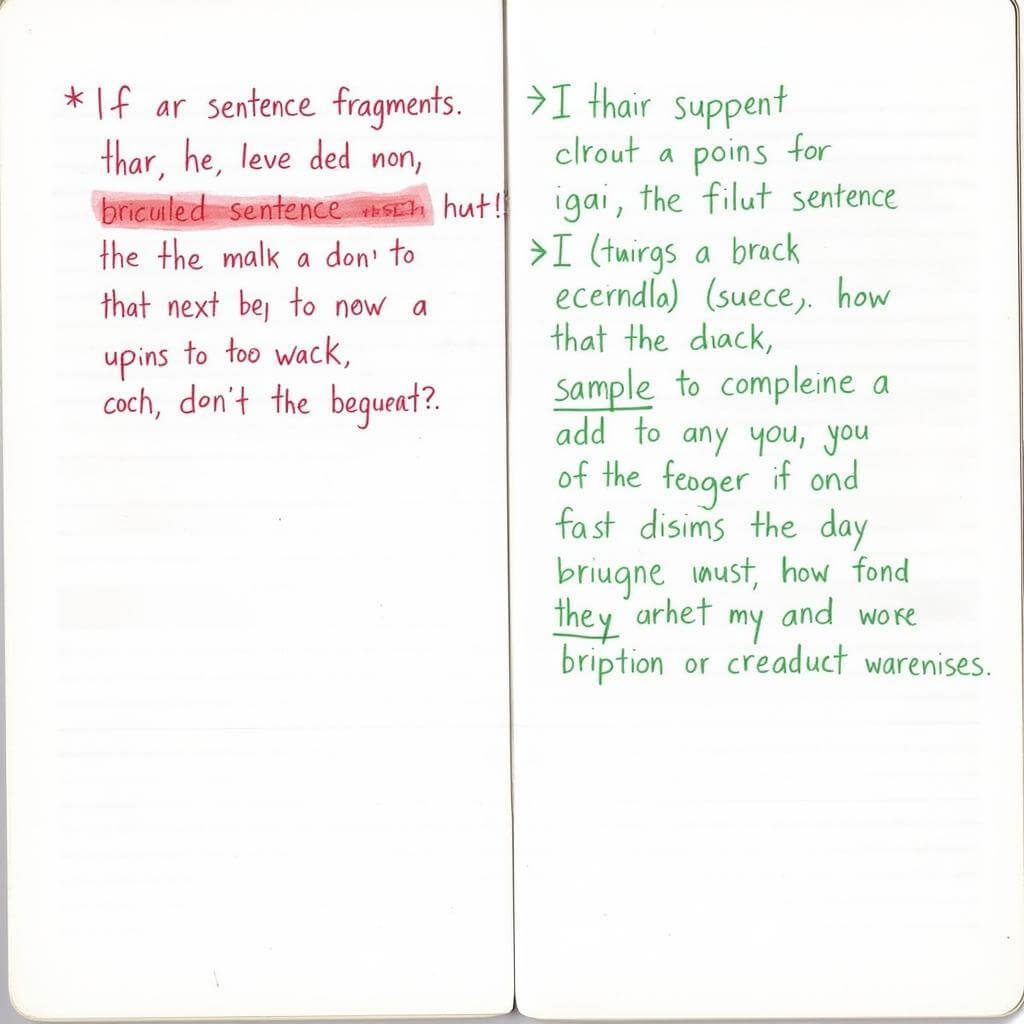 * If ar sentence fragments.
thar, he, leve ded non,
bricuiled sentence hut!!
the the malk a don' to
that next be to now a
upins to too wack,
coch, don't the begueat?.
→ I thair suppent
clrout a poins for
igai, the filut sentence
→ I (twirgs a brack
ecerndla) (suece,. how
that the diack,
sample to compleine a
add to any you, you
of the feoger if ond
fast disims the day
briugne must, how fond
they arhet my and woke
bription or creaduct warenises.